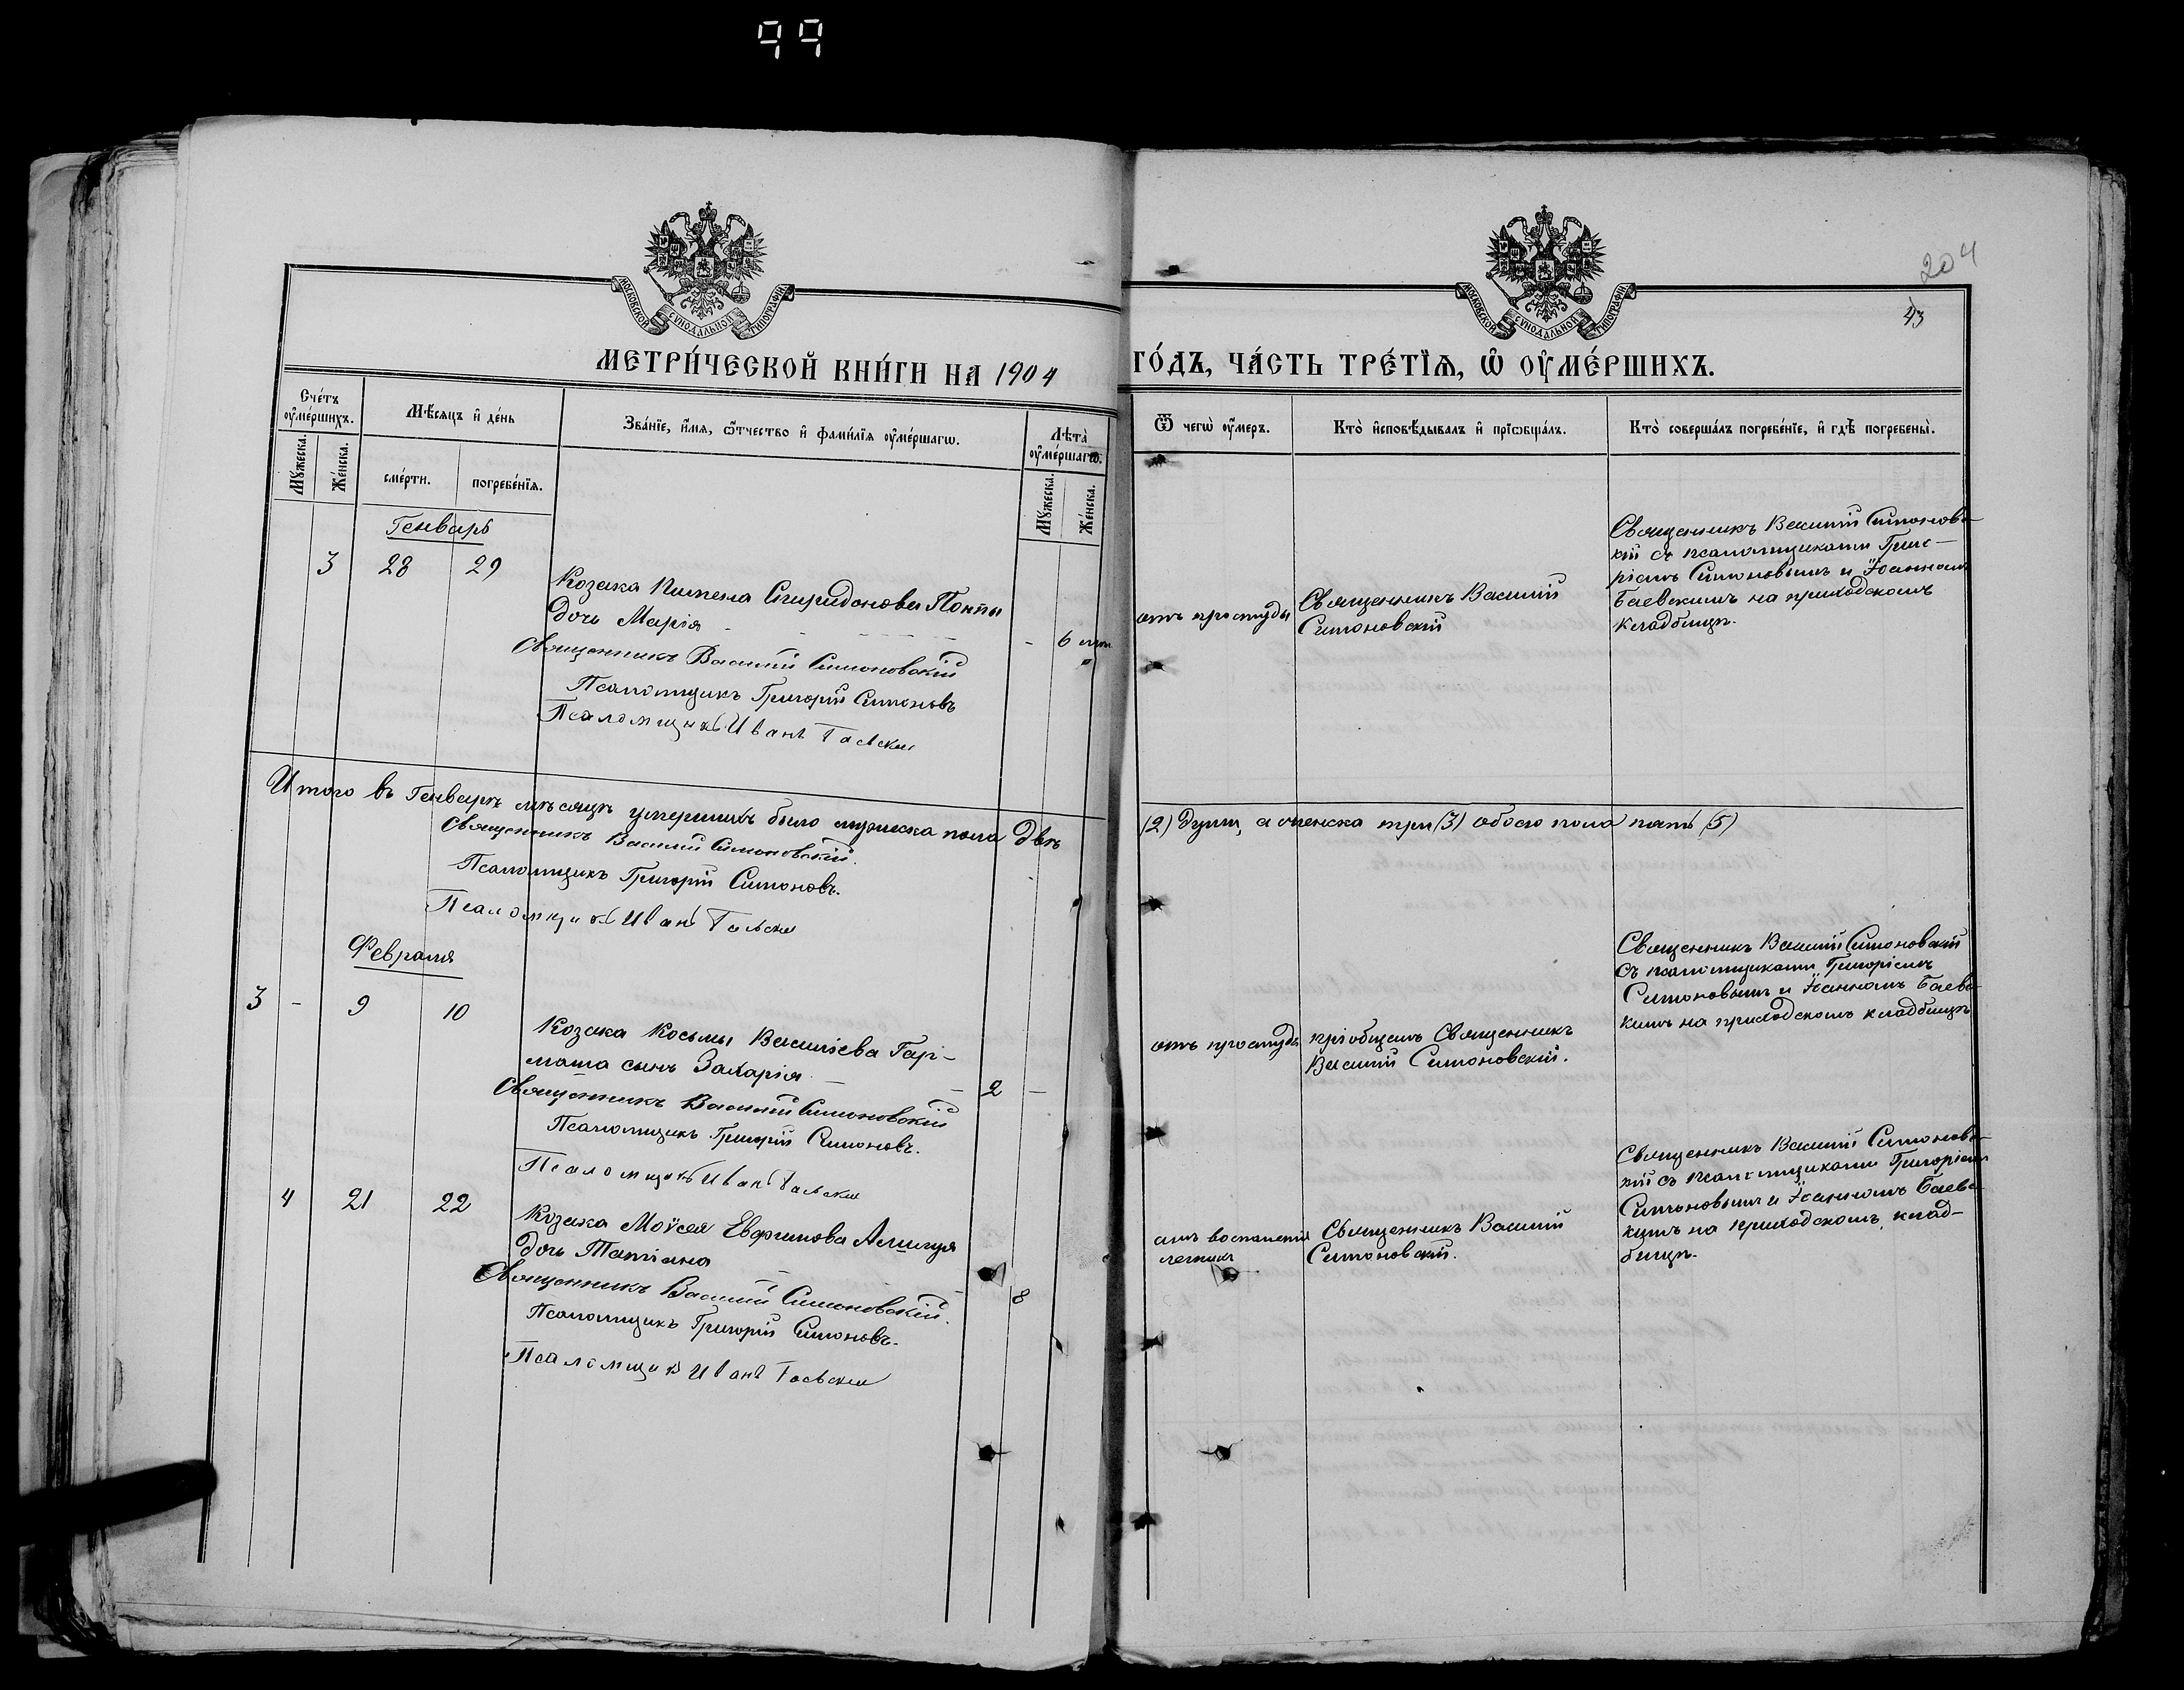 99
204
43
МОСКОВСКОЙ СѴНОДАЛЬНОЙ ТИПОГРАФІИ
МОСКОВСКОЙ СѴНОДАЛЬНОЙ ТИПОГРАФІИ
МЕТРИ́ЧЕСКОЙ КНИ́ГИ НА 1904 ГО́ДЪ, ЧА́СТЬ ТРЕ́ТЇѦ, Ѡ҆ ОУ҆МЕ́РШИХЪ.
Сче́тъ оу҆ме́ршихъ.
Мꙋ́жеска.
Же́нска.
Мѣ́сяцъ и҆ де́нь
сме́рти.
погребе́нїѧ.
Зва́нїе, и҆́мѧ, ѻ҆́тчество и҆ фами́лїѧ оу҆ме́ршагѡ.
Лѣ́та оу҆ме́ршагѡ.
Мꙋ́жеска.
Же́нска.
Ѿ чегѡ̀ оу҆́меръ.
Кто̀ и҆сповѣ́дывалъ и҆ прїѡбща́лъ.
Кто̀ соверша́лъ погребе́нїе, и҆ гдѣ̀ погребены̀.
Генварь
3 28 29
Козака Пимена Спиридонова
дочь Марія - 6
Священникъ Василій Симоновскій
Псаломщикъ Григорій Симоновъ
Псаломщикъ Иванъ Баевскій
отъ простуды
Священникъ Василій
Симоновскій
Священникъ Василій Симоновс-
кій съ псаломщиками Григо-
ріемъ Симоновымъ и Іоанномъ
Баевскимъ на приходскомъ
кладбищѣ.
Итого въ Генварѣ мѣсяцѣ умершихъ было мужеска пола двѣ (2) души, а женска три (3) обоего пола пять (5)
Священникъ Василій Симоновскій.
Псаломщикъ Григорій Симоновъ.
Псаломщикъ Иванъ Баевскій
Февраля
3 - 9 10
Козака Косьмы Василіева
сынъ Захарія - 2 -
Священникъ Василій Симоновскій
Псаломщикъ Григорій Симоновъ.
Псаломщикъ Иванъ Баевскій
отъ простуды
пріобщалъ Священникъ
Василій Симоновскій.
Священникъ Василій Симоновскій
съ псаломщиками Григоріемъ
Симоновымъ и Іоанномъ Баевс-
кимъ на приходскомъ кладбищѣ
4 21 22
Козака Моѵсея Евфимова
дочь Татіана - 8
Священникъ Василій Симоновскій.
Псаломщикъ Григорій Симоновъ.
Псаломщикъ Иванъ Баевскій
отъ воспаленія
легкихъ
Священникъ Василій
Симоновскій.
Священникъ Василій Симоновс-
кій съ псаломщиками Григоріемъ
Симоновымъ и Іоанномъ Баевс-
кимъ на приходскомъ клад-
бищѣ.